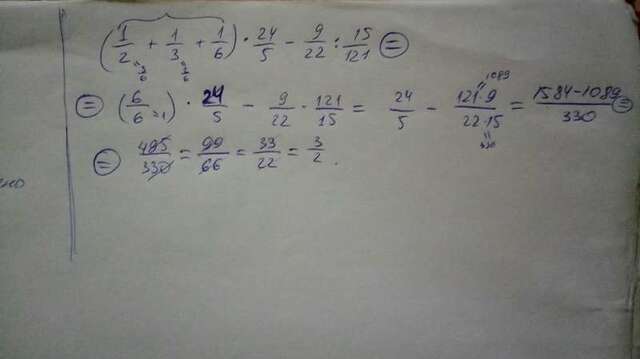 (1/2 + 1/3 + 1/6) · 24/5 - 9/22 : 15/121 =
3/6 2/6
1089
= (6/6 = 1) · 24/5 - 9/22 · 121/15 = 24/5 - 121·9/22·15 = 1584-1089/330 =
330
= 495/330 = 99/66 = 33/22 = 3/2.